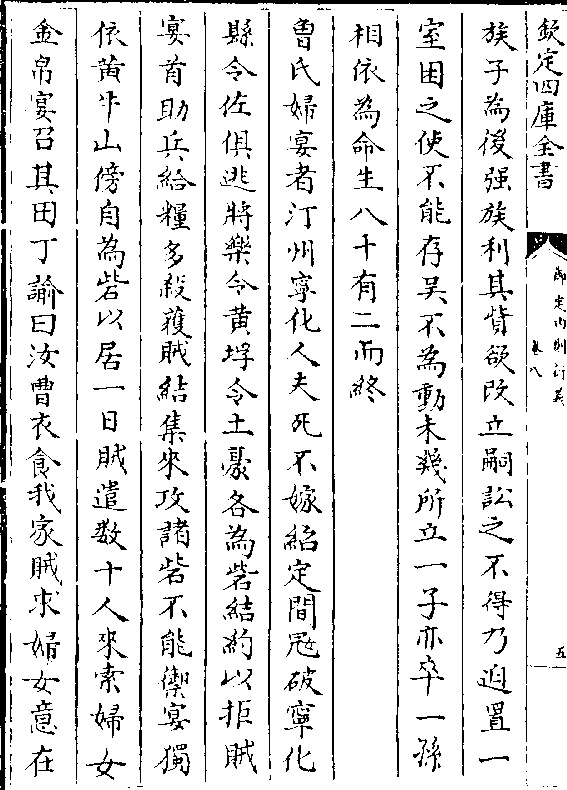 欽定四庫全書
御定内則衍義
卷八
五
族子為後强族利其貲欲改立嗣訟之不得乃迫置一
室困之使不能存吴不為動未幾所立一子亦卒一孫
相依為命生八十有二而終
曽氏婦宴者汀州寧化人夫死不嫁紹定間冦破寧化
縣令佐俱逃將樂令黄埒令土豪各為砦結約以拒賊
宴首助兵給糧多殺獲賊結集來攻諸砦不能禦宴獨
依黄牛山傍自為砦以居一日賊遣數十人來索婦女
金帛宴召其田丁諭曰汝曹衣食我家賊求婦女意在